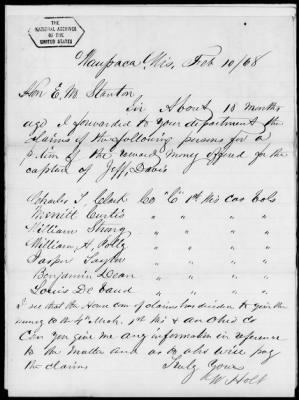 THE
NATIONAL ARCHIVES
OF THE
UNITED STATES
Waupaca Wis, Feb 10/68
Hon E. M. Stanton
Sir About 18 months
ago I forwarded to your department the
claims of the following persons for a
portion of the reward money offered for the
capture of Jeff, Davis
Charles L. Clark Co "C" 1st Wis Cav Vols
Merritt Curtis " " " "
William Strong " " " "
William H. Potts " " " "
Jasper Taylor " " " "
Benjamin Dean " " " "
Louis De " " " "
I see that the House com of claims has decided to give the
money to the 4th Mich, 1st Wis & an Ohio Co
Can you give me any information in reference
to the matter and as to who will pay
the claims Truly Yours
W Holt